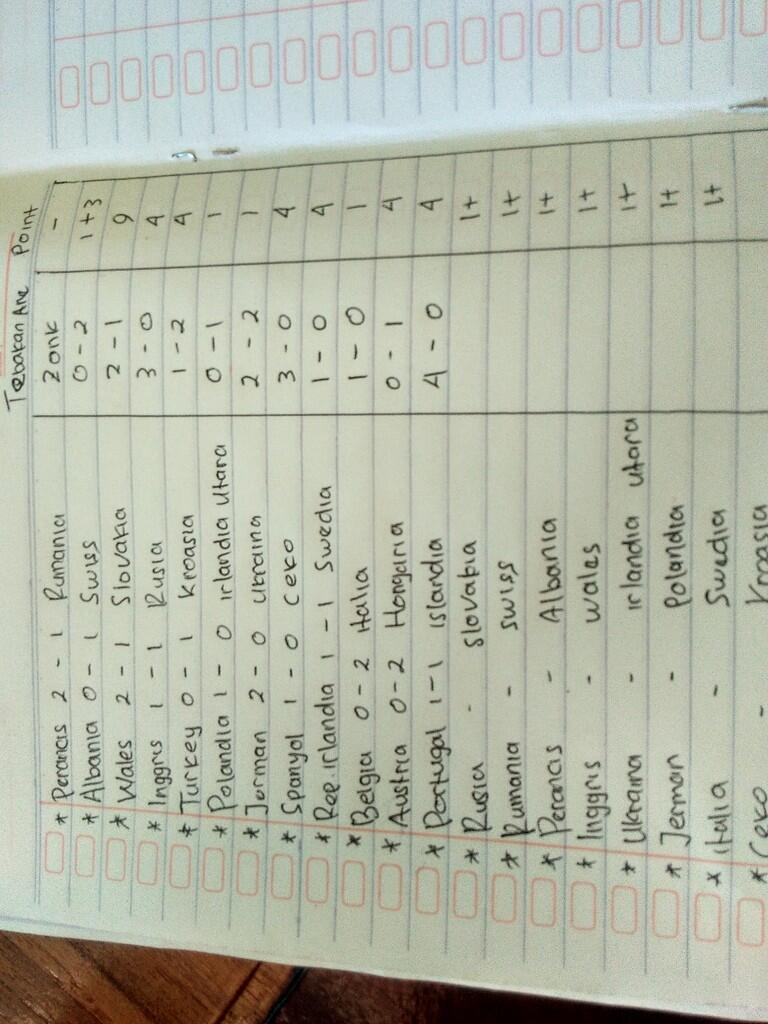 Tebakan Ane Point
* Perancis 2 - 1 Rumania Zonk -
* Albania 0 - 1 Swiss 0 - 2 1+3
* Wales 2 - 1 Slovakia 2 - 1 9
* Inggris 1 - 1 Rusia 3 - 0 4
* Turkey 0 - 1 Kroasia 1 - 2 4
* Polandia 1 - 0 Irlandia Utara 0 - 1 1
* Jerman 2 - 0 Ukraina 2 - 2 1
* Spanyol 1 - 0 Ceko 3 - 0 4
* Rep. Irlandia 1 - 1 Swedia 1 - 0 4
* Belgia 0 - 2 Italia 1 - 0 1
* Austria 0 - 2 Hongaria 0 - 1 4
* Portugal 1 - 1 Islandia 4 - 0 4
* Rusia - Slovakia 1+
* Rumania - Swiss 1+
* Perancis - Albania 1+
* Inggris - Wales 1+
* Ukraina - Irlandia Utara 1+
* Jerman - Polandia 1+
* Italia - Swedia 1+
* Ceko - Kroasia